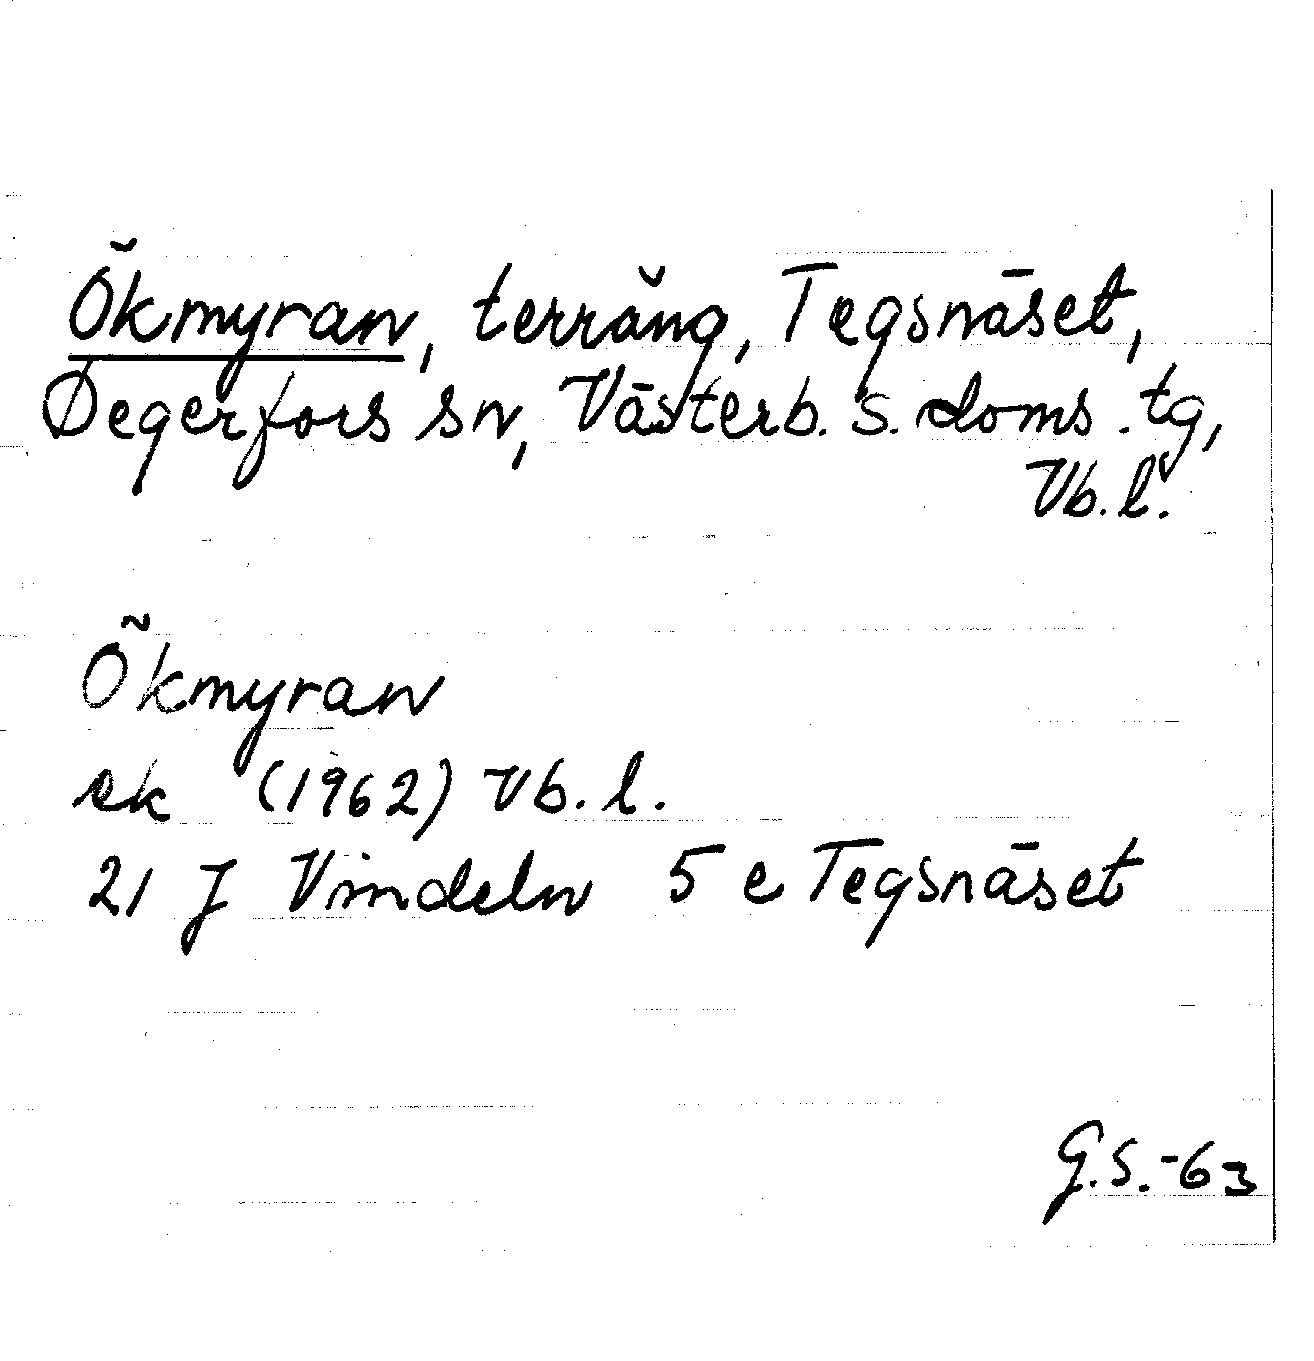 Ökmyran, terräng, Tegsnäset,
Degerfors sn, Västerb. s. doms. tg,
Vb. l.
Ökmyran
ek (1962) Vb. l.
21 J Vindeln 5 e Tegsnäset
G.S.-63